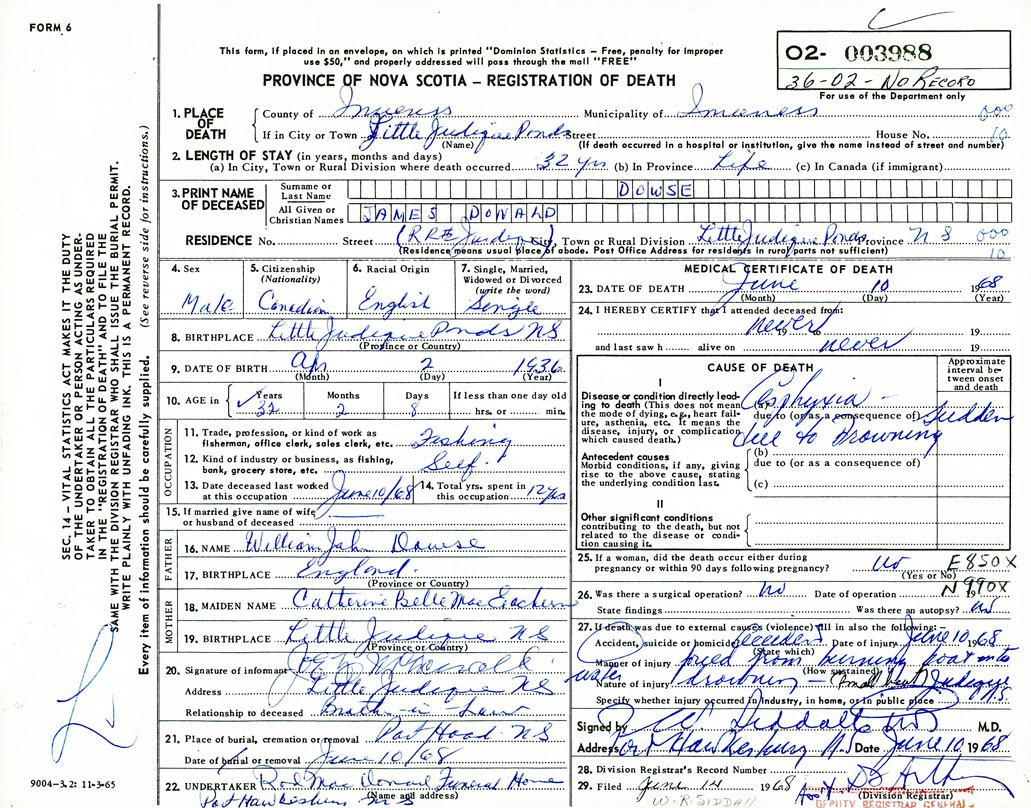 FORM 6
This form, if placed in an envelope, on which is printed "Dominion Statistics – Free, penalty for improper
use $50," and properly addressed will pass through the mail "FREE"
PROVINCE OF NOVA SCOTIA – REGISTRATION OF DEATH
O2- 003988
36-02-No Record
For use of the Department only
1. PLACE OF DEATH
County of Inverness Municipality of Inverness 000
If in City or Town Little Judique Ponds Street House No. 10
(Name) (If death occurred in a hospital or institution, give the name instead of street and number)
2. LENGTH OF STAY (in years, months and days)
(a) In City, Town or Rural Division where death occurred 32 yrs (b) In Province Life (c) In Canada (if immigrant)
3. PRINT NAME OF DECEASED
Surname or Last Name DOWSE
All Given or Christian Names JAMES DONALD
RESIDENCE No. Street (RR# Judique) City, Town or Rural Division Little Judique Ponds Province N S 000
(Residence means usual place of abode. Post Office Address for residents in rural parts not sufficient) 10
4. Sex Male
5. Citizenship (Nationality) Canadian
6. Racial Origin English
7. Single, Married, Widowed or Divorced (write the word) Single
8. BIRTHPLACE Little Judique Ponds NS
(Province or Country)
9. DATE OF BIRTH Apr 2 1936
(Month) (Day) (Year)
10. AGE in Years Months Days If less than one day old
32 2 8 hrs. or min.
OCCUPATION
11. Trade, profession, or kind of work as
fisherman, office clerk, sales clerk, etc. Fishing
12. Kind of industry or business, as fishing,
bank, grocery store, etc. Self.
13. Date deceased last worked at this occupation June 10/68
14. Total yrs. spent in this occupation 12 yrs
15. If married give name of wife
or husband of deceased
FATHER
16. NAME William John Dowse
17. BIRTHPLACE England.
(Province or Country)
MOTHER
18. MAIDEN NAME Catherine Belle MacEachern
19. BIRTHPLACE Little Judique NS
(Province or Country)
20. Signature of informant
Address Little Judique NS
Relationship to deceased Broth-in-Law
21. Place of burial, cremation or removal Port Hood NS
Date of burial or removal June 10/68
22. UNDERTAKER Rod MacDonald Funeral Home
(Name and address)
Port Hawkesbury NS
MEDICAL CERTIFICATE OF DEATH
23. DATE OF DEATH June 10 1968
(Month) (Day) (Year)
24. I HEREBY CERTIFY that I attended deceased from:
never 19 19
and last saw h alive on never 19
CAUSE OF DEATH
Approximate interval between onset and death
I
Disease or condition directly leading to death (This does not mean the mode of dying, e.g., heart failure, asthenia, etc. It means the disease, injury, or complication which caused death.)
(a) Asphyxia –
due to (or as a consequence of) Sudden
due to drowning
Antecedent causes
Morbid conditions, if any, giving rise to the above cause, stating the underlying condition last.
(b)
due to (or as a consequence of)
(c)
II
Other significant conditions
contributing to the death, but not related to the disease or condition causing it.
25. If a woman, did the death occur either during
pregnancy or within 90 days following pregnancy? No E850X
(Yes or No) N990X
26. Was there a surgical operation? No Date of operation 19
State findings Was there an autopsy? No
27. If death was due to external causes (violence) fill in also the following:–
Accident, suicide or homicide? accident Date of injury June 10, 1968
(State which)
Manner of injury jumped from burning boat into water
(How sustained)
Nature of injury drowning – (Small boat) Judique N.S.
Specify whether injury occurred in industry, in home, or in public place
Signed by W Siddall MD M.D.
Address Port Hawkesbury N.S Date June 10, 1968
28. Division Registrar's Record Number
29. Filed June 14 1968
(Division Registrar)
W. R. SIDDALL
DEPUTY REGISTRAR GENERAL
SEC. 14 – VITAL STATISTICS ACT MAKES IT THE DUTY
OF THE UNDERTAKER OR PERSON ACTING AS UNDER-
TAKER TO OBTAIN ALL THE PARTICULARS REQUIRED
IN THE "REGISTRATION OF DEATH" AND TO FILE THE
SAME WITH THE DIVISION REGISTRAR WHO SHALL ISSUE THE BURIAL PERMIT.
WRITE PLAINLY WITH UNFADING INK. THIS IS A PERMANENT RECORD.
Every item of information should be carefully supplied. (See reverse side for instructions.)
9004–3.2: 11-3-65